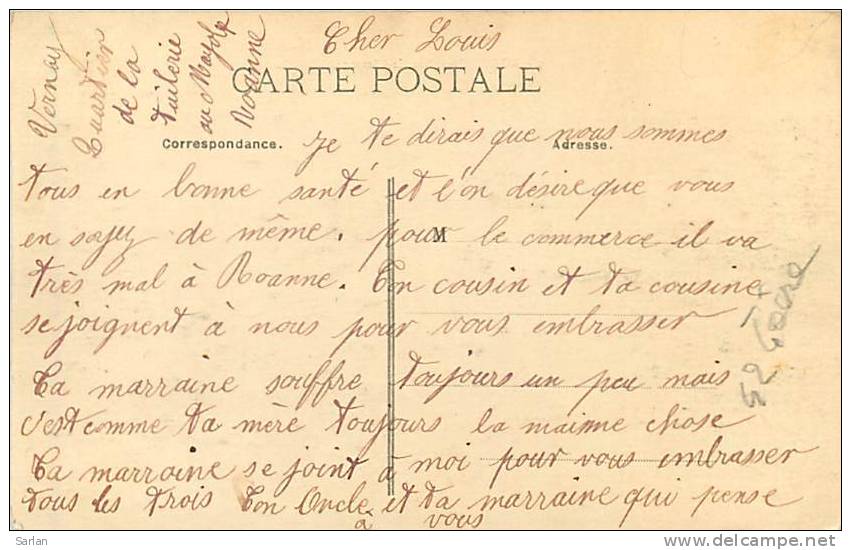 Vernay
Quartier
de la
tuilerie
au Mayol
Roanne
Cher Louis
CARTE POSTALE
Correspondance.
Adresse.
Je te dirais que nous sommes
tous en bonne santé et l'on désire que vous
en soyez de même. pour le commerce il va
M
très mal à Roanne. Ton cousin et ta cousine
se joignent à nous pour vous embrasser
Ta marraine souffre toujours un peu mais
c'est comme ta mère toujours la maime chose
Ta marraine se joint à moi pour vous embrasser
tous les trois Ton Oncle et ta marraine qui pense
à vous
Sarlan
delcampe.net